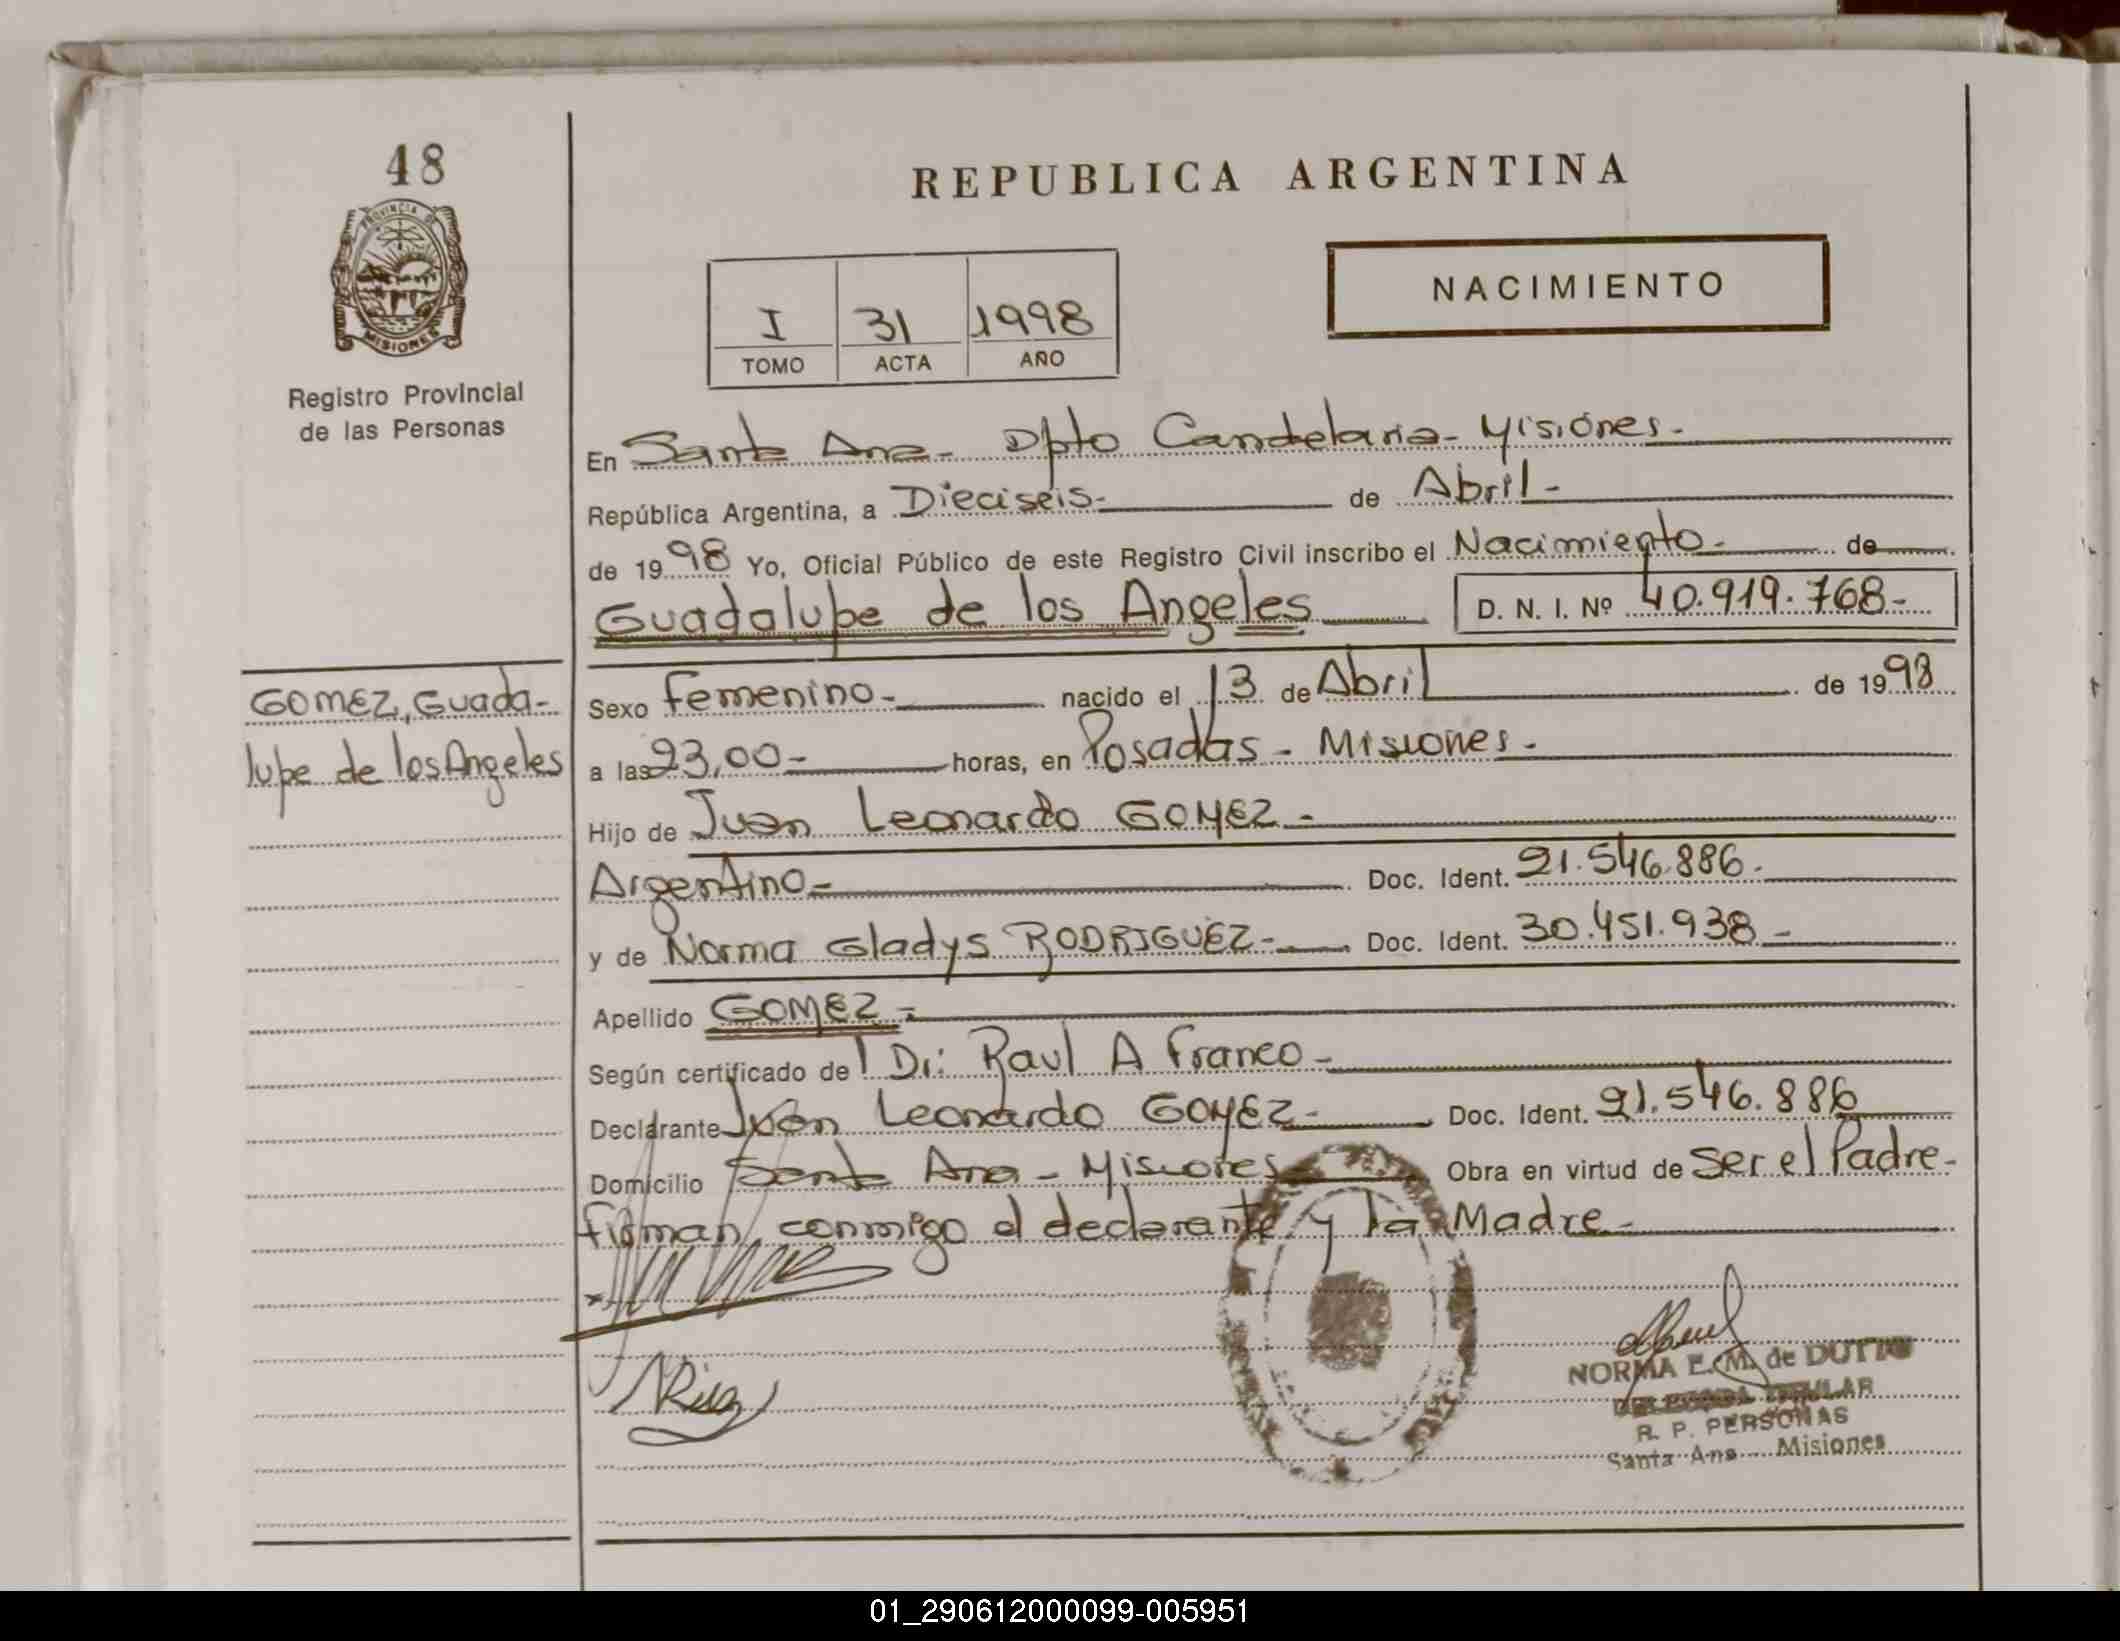 48
PROVINCIA DE
MISIONES
Registro Provincial
de las Personas
REPUBLICA ARGENTINA
NACIMIENTO
I 31 1998
TOMO ACTA AÑO
En Santa Ana - Dpto Candelaria - Misiones -
República Argentina, a Dieciseis - de Abril -
de 1998 Yo, Oficial Público de este Registro Civil inscribo el Nacimiento - de
Guadalupe de los Angeles D. N. I. Nº 40.919.768 -
GOMEZ, Guada-
lupe de los Angeles
Sexo Femenino - nacido el 13 de Abril de 1998
a las 23,00 - horas, en Posadas - Misiones -
Hijo de Juan Leonardo GOMEZ -
Argentino - Doc. Ident. 21.546.886 -
y de Norma Gladys RODRIGUEZ - Doc. Ident. 30.451.938 -
Apellido GOMEZ -
Según certificado del Dr: Raul A Franco -
Declarante Juan Leonardo GOMEZ - Doc. Ident. 21.546.886
Domicilio Santa Ana - Misiones Obra en virtud de Ser el Padre -
Firman conmigo el declarante y la Madre -
NORMA E. M. de DUTTO
TITULAR
R. P. PERSONAS
Santa Ana - Misiones
01_290612000099-005951